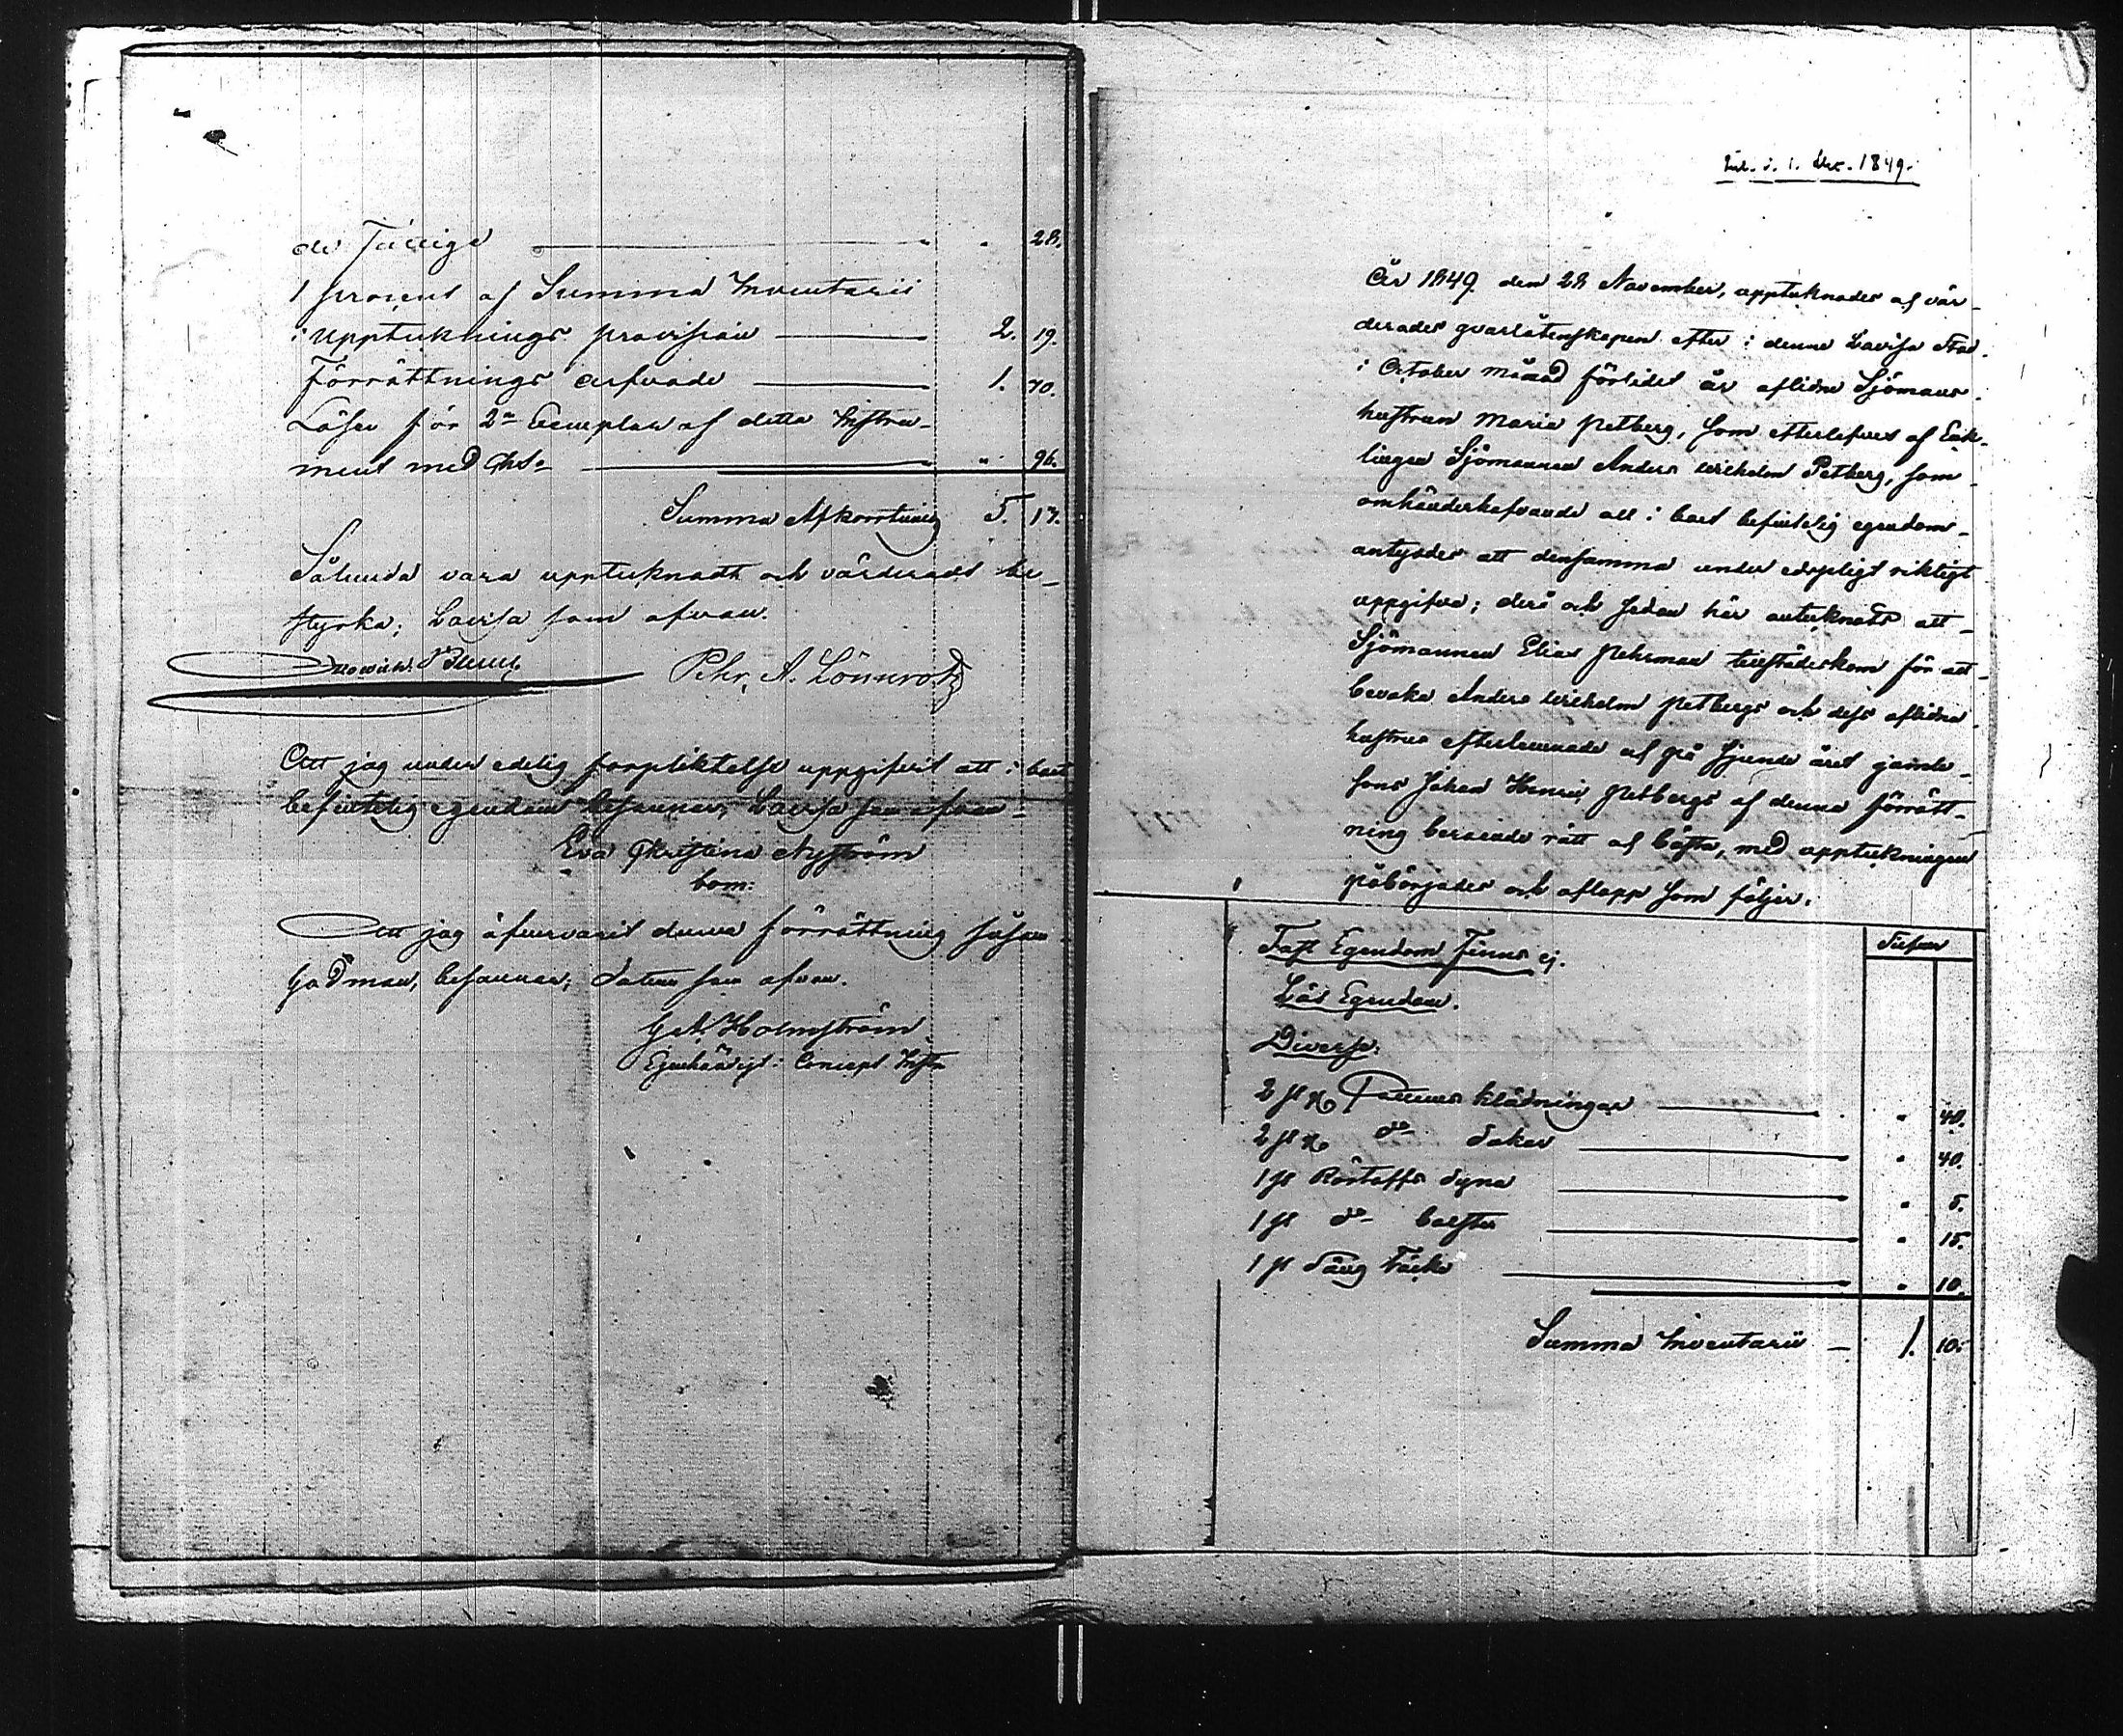 de Fattige " 28.
1 procent af Summa Inventarii
i Uppteknings provision 2. 19.
Förrättnings arfvode 1. 70.
Lösen för 2ne Exemplar af detta Instru-
ment med Chs= " 96.
Summa Afkorrtning 5. 13.
Sålunda vara upptecknadt och värderadt be-
styrka; Lovisa som ofvan.
Pehr. A. Lönnrot
Att jag under edelig förpliktelse uppgifvit all i boet
befintelig egendom besannar; Lovisa som ofvan
Eva Christina Nyström
bom:
Att jag öfvervarit denna förrättning såsom
Godman, besannar; Datum som ofvan.
Holmström
Egenhändigt. Concept
Inl. d. 1. Dec. 1849.
År 1849 den 28 November, upptecknades af vär-
derades qvarlåtenskapen efter i denne Lovisa Stad
i October månad förlidet år aflidne Sjömans
hustrun Maria Petberg, som efterlefves af Enk-
lingen Sjömannen Anders Wilhelm Petberg, som
omhänderhafvande all i boet befintelig egendom
antydes att densamma under edspligt riktigt
uppgifva; derå och sedan här anteknats att
Sjömannen Elias Pehrman tillstädeskom för att
bevaka Anders Wilhelm Petbergs och dess aflidna
hustrus efterlemnade af på sjunde året gamle
sons Johan Henric Petbergs af denna förrätt-
ning beroende rätt af bästa, med uppteckningen
påbörjades och aflopp som följer.
Silfver
Fast Egendom finnes ej.
Lös Egendom.
Diverse:
2 st klädningar " 40.
2 st do " 40.
1 st dyna " 5.
1 st do bolster " 15.
1 st Säng Täcke " 10.
Summa Inventarii 1. 10.